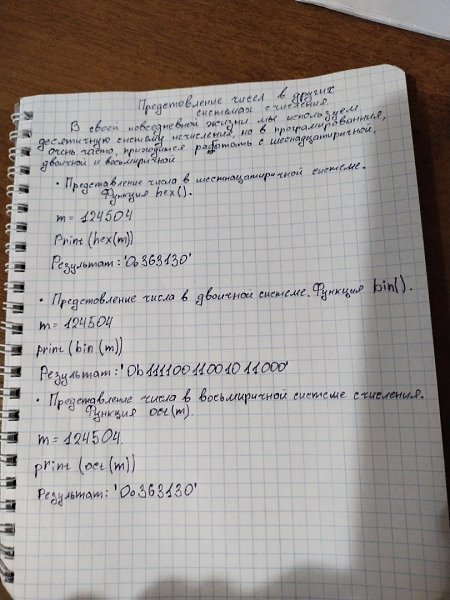 Предстовление чисел в других
системах счисления
В своей повседневной жизни мы используем
десятичную систему исчисления, но в програмирования,
очень часто, приходится работать с шеснадцатиричной,
двоичной и восьмиричной
• Представление числа в шестнацатиричной системе.
Функция hex().
m = 124504
Print (hex(m))
Результат: '0o363130'
• Предстовление числа в двоичной системе. Функция bin().
m = 124504
print (bin (m))
Результат: '0b11110011001011000'
• Предстовление числа в восьмиричной системе счисления.
Функция oct(m).
m = 124504.
print (oct(m))
Результат: '0o363130'